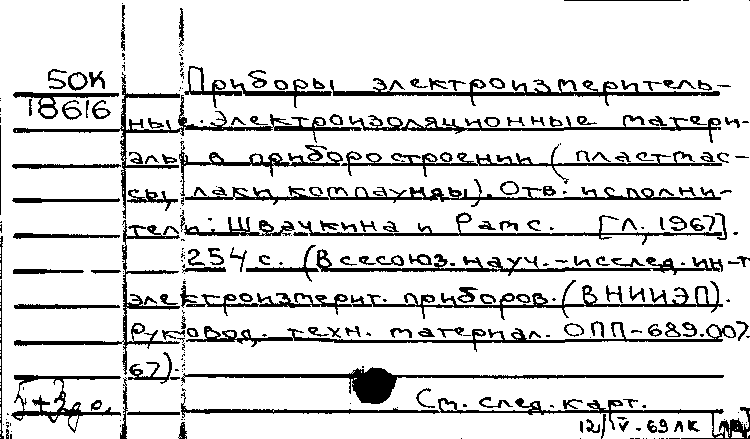 50К
18616
Приборы электроизмеритель-
ные. Электроизоляционные матери-
алы в приборостроении (пластмас-
сы, лаки, компаунды). Отв. исполни-
тели: Швачкина и Ратс. [Л., 1967].
254 с. (Всесоюз. науч.-исслед. ин-т
электроизмерит. приборов. (ВНИИЭП).
Руковод. техн. материал. ОПП-689.007.
67).
См. след. карт.
12/IV-69 ЛК